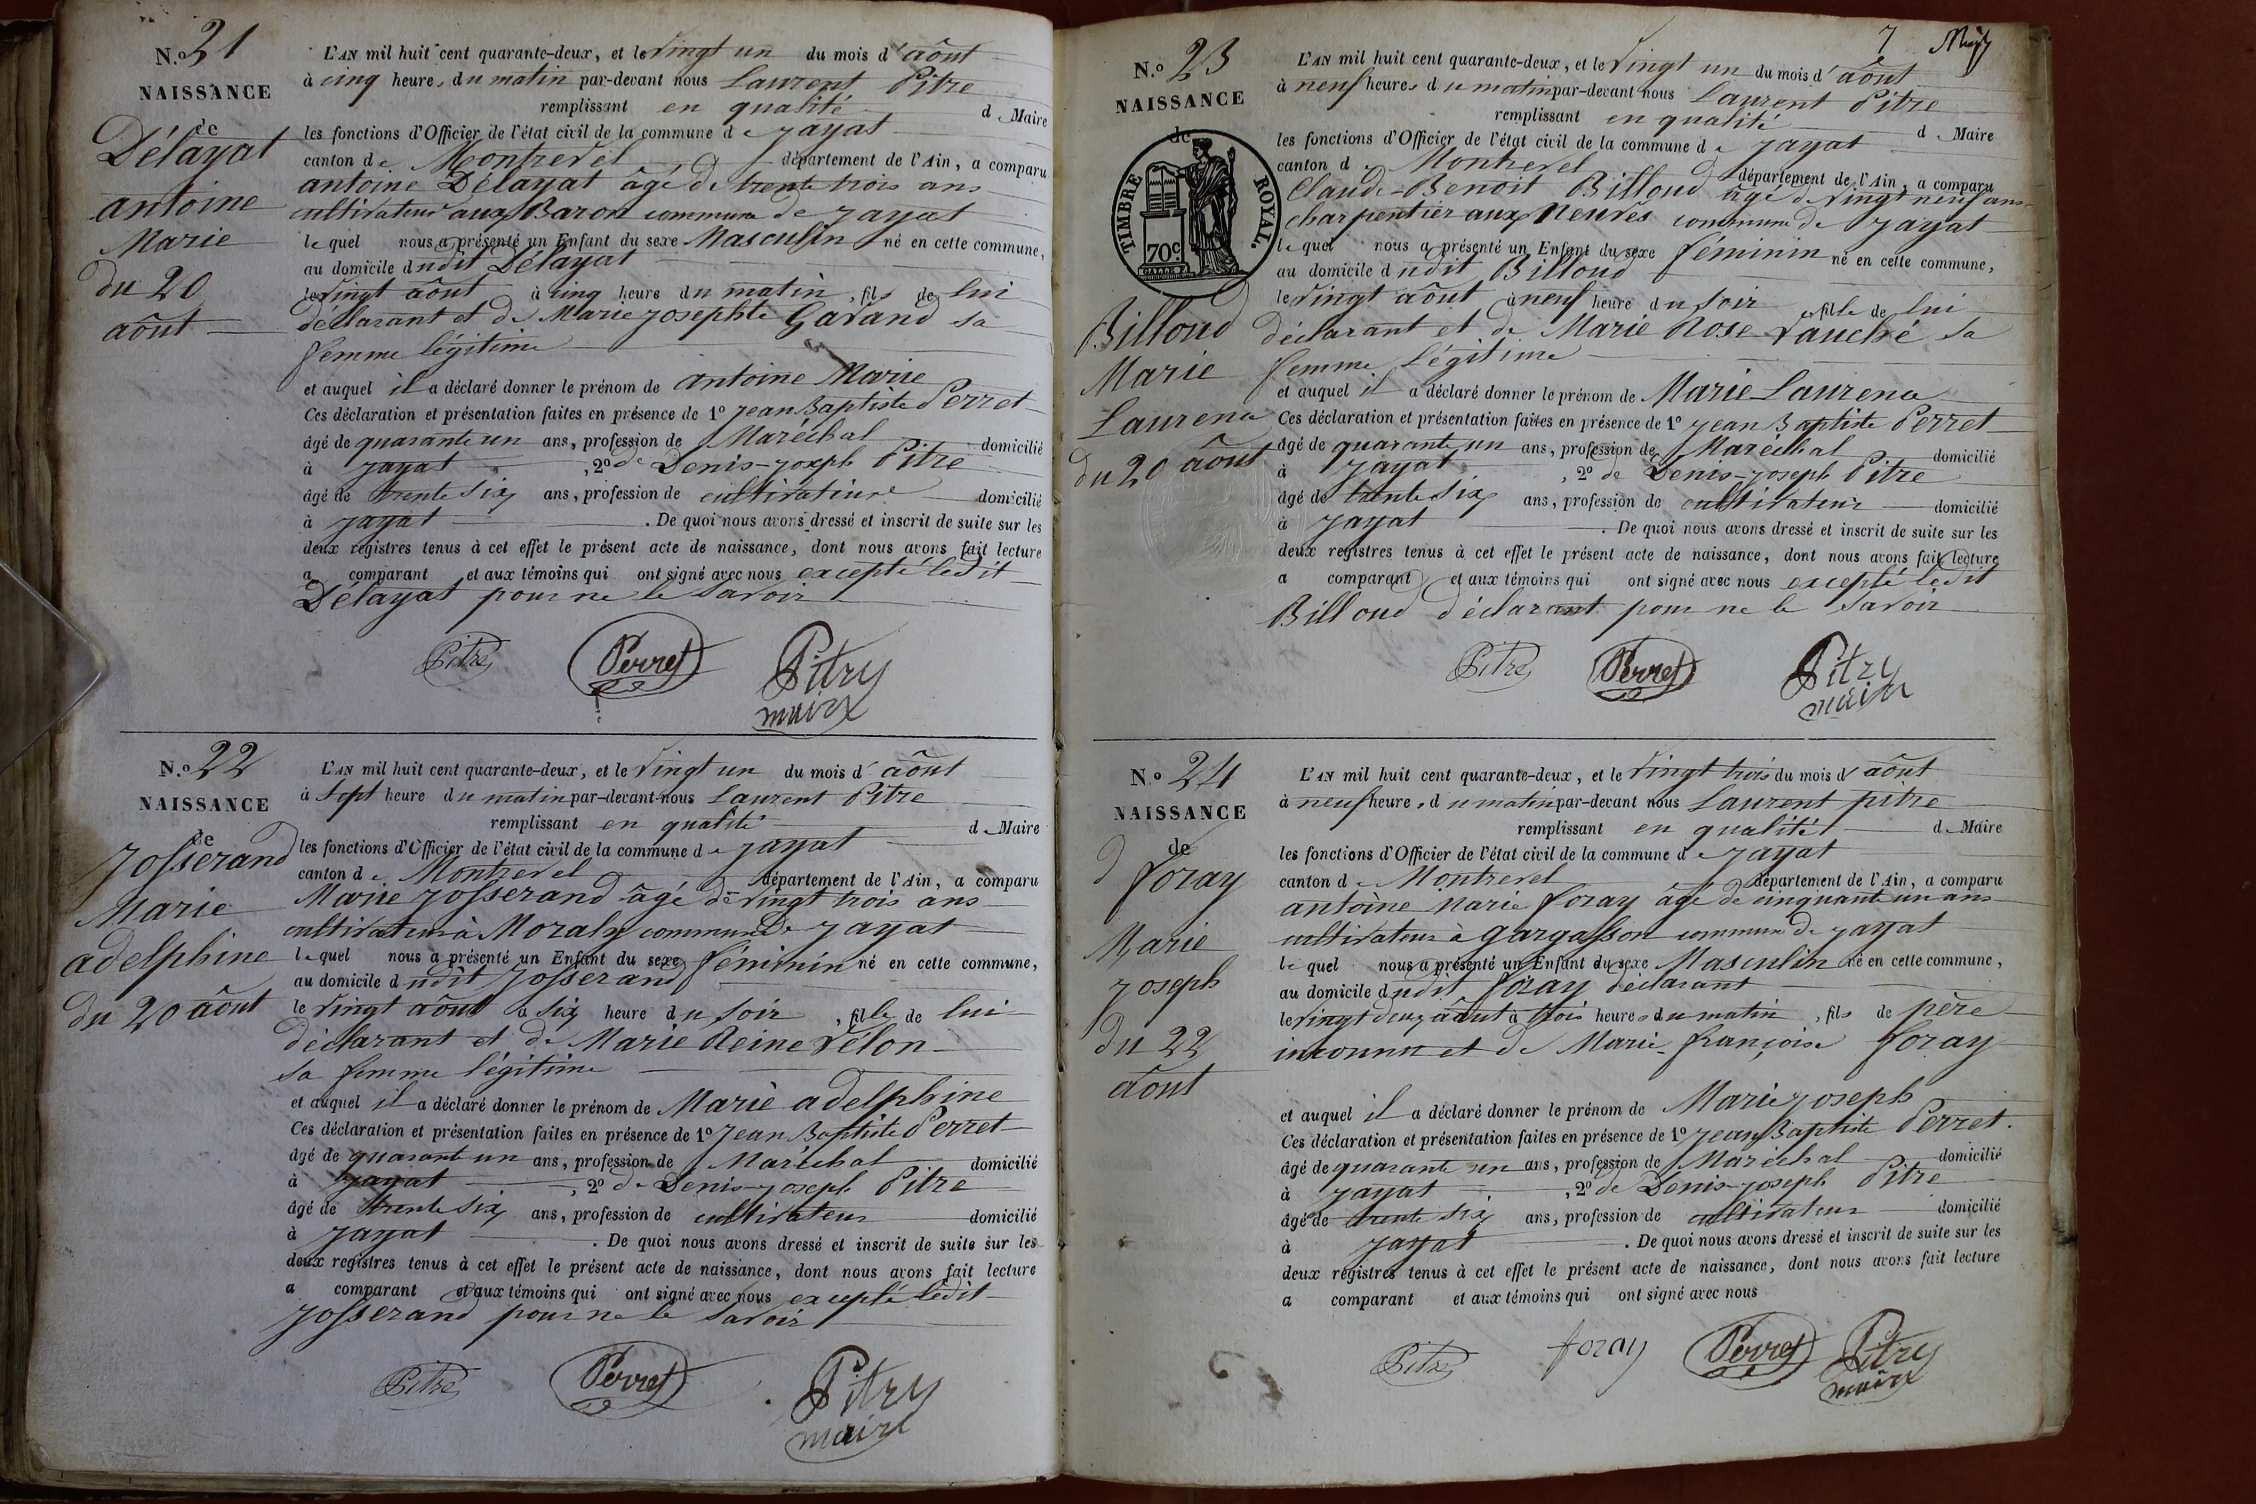 N.o 21
NAISSANCE
de
Délayat
antoine
Marie
du 20
aôut
L'AN mil huit cent quarante-deux, et le vingt un du mois d'aôut
à cinq heures du matin par-devant nous Laurent Pitre
remplissant en qualité de Maire
les fonctions d'Officier de l'état civil de la commune de Jayat
canton de Montrevel département de l'Ain, a comparu
antoine Délayat âgé de trente trois ans
cultivateur aux Baron commune de Jayat
lequel nous a présenté un Enfant du sexe Masculin né en cette commune,
au domicile dudit Délayat
le vingt aôut à cinq heure du matin, fils de lui
déclarant et de Marie Josephte Gavand sa
femme légitime
et auquel il a déclaré donner le prénom de antoine Marie
Ces déclaration et présentation faites en présence de 1o Jean Baptiste Perret
âgé de quarante un ans, profession de Maréchal domicilié
à Jayat, 2o de Denis-Joseph Pitre
âgé de trente six ans, profession de cultivateur domicilié
à Jayat. De quoi nous avons dressé et inscrit de suite sur les
deux registres tenus à cet effet le présent acte de naissance, dont nous avons fait lecture
a comparant et aux témoins qui ont signé avec nous excepté ledit
Délayat pour ne le savoir
Pitre Perret Pitre
maire
N.o 22
NAISSANCE
de
Josserand
Marie
adelphine
du 20 aôut
L'AN mil huit cent quarante-deux, et le vingt un du mois d'aôut
à sept heure du matin par-devant nous Laurent Pitre
remplissant en qualité de Maire
les fonctions d'Officier de l'état civil de la commune de Jayat
canton de Montrevel département de l'Ain, a comparu
Marie Josserand âgé de vingt trois ans
cultivateur à Moraly commune de Jayat
lequel nous a présenté un Enfant du sexe féminin né en cette commune,
au domicile dudit Josserand
le vingt aôut à six heure du soir, fille de lui
déclarant et de Marie Reine Velon
sa femme légitime
et auquel il a déclaré donner le prénom de Marie adelphine
Ces déclaration et présentation faites en présence de 1o Jean Baptiste Perret
âgé de quarante un ans, profession de Maréchal domicilié
à Jayat, 2o de Denis-Joseph Pitre
âgé de trente six ans, profession de cultivateur domicilié
à Jayat. De quoi nous avons dressé et inscrit de suite sur les
deux registres tenus à cet effet le présent acte de naissance, dont nous avons fait lecture
a comparant et aux témoins qui ont signé avec nous excepté ledit
Josserand pour ne le savoir
Pitre Perret Pitre
maire
7
N.o 23
NAISSANCE
de
TIMBRE ROYAL.
70c
Billoud
Marie
Laurena
du 20 aôut
L'AN mil huit cent quarante-deux, et le vingt un du mois d'aôut
à neuf heures du matin par-devant nous Laurent Pitre
remplissant en qualité de Maire
les fonctions d'Officier de l'état civil de la commune de Jayat
canton de Montrevel département de l'Ain, a comparu
Claude-Benoit Billoud âgé de vingt neuf ans
charpentier aux Neuves commune de Jayat
lequel nous a présenté un Enfant du sexe féminin né en cette commune,
au domicile dudit Billoud
le vingt aôut à neuf heure du soir, fille de lui
déclarant et de Marie Rose Vauché sa
femme légitime
et auquel il a déclaré donner le prénom de Marie Laurena
Ces déclaration et présentation faites en présence de 1o Jean Baptiste Perret
âgé de quarante un ans, profession de Maréchal domicilié
à Jayat, 2o de Denis-Joseph Pitre
âgé de trente six ans, profession de cultivateur domicilié
à Jayat. De quoi nous avons dressé et inscrit de suite sur les
deux registres tenus à cet effet le présent acte de naissance, dont nous avons fait lecture
a comparant et aux témoins qui ont signé avec nous excepté ledit
Billoud déclarant pour ne le savoir
Pitre Perret Pitre
maire
N.o 24
NAISSANCE
de
foray
Marie
Joseph
du 22
aôut
L'AN mil huit cent quarante-deux, et le vingt trois du mois d'aôut
à neuf heures du matin par-devant nous Laurent pitre
remplissant en qualité de Maire
les fonctions d'Officier de l'état civil de la commune de Jayat
canton de Montrevel département de l'Ain, a comparu
antoine Marie foray âgé de cinquante un ans
cultivateur à gargasson commune de Jayat
lequel nous a présenté un Enfant du sexe Masculin né en cette commune,
au domicile dudit foray déclarant
le vingt deux aôut à trois heures du matin, fils de père
inconnu et de Marie-françoise foray
et auquel il a déclaré donner le prénom de Marie Joseph
Ces déclaration et présentation faites en présence de 1o Jean Baptiste Perret.
âgé de quarante un ans, profession de Maréchal domicilié
à Jayat, 2o de Denis-Joseph Pitre
âgé de trente six ans, profession de cultivateur domicilié
à Jayat. De quoi nous avons dressé et inscrit de suite sur les
deux registres tenus à cet effet le présent acte de naissance, dont nous avons fait lecture
a comparant et aux témoins qui ont signé avec nous
Pitre foray Perret Pitre
maire